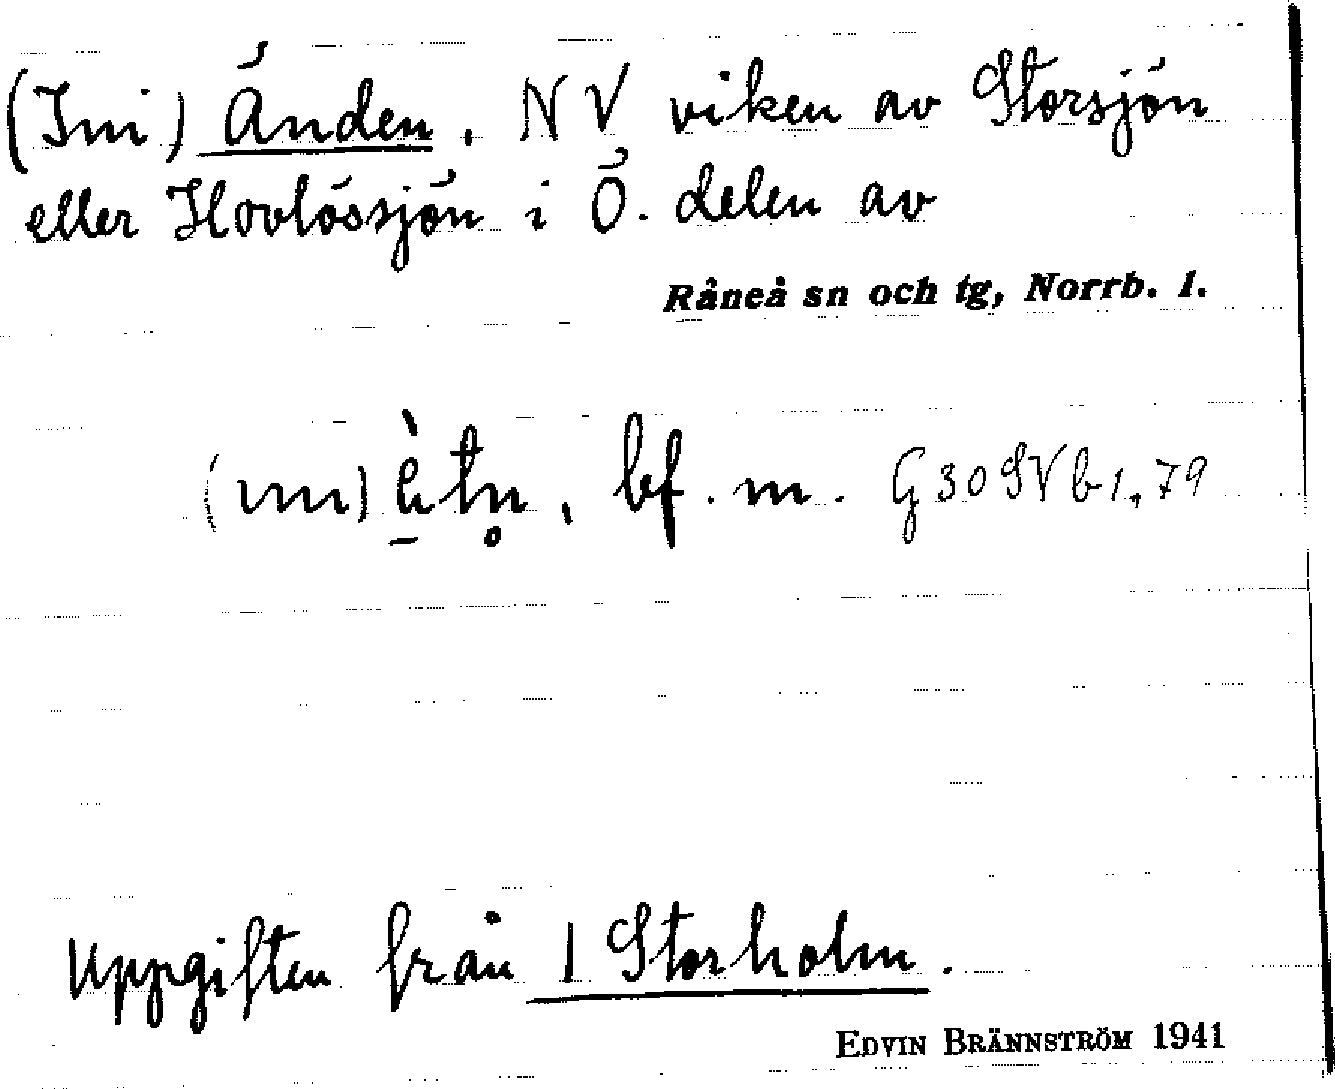 (Ini) Änden, NV viken av Storsjön
eller Hovlössjön i Ö. delen av
Råneå sn och tg, Norrb. l.
bf. m. G 30 SV b 1, 79
Uppgiften från 1 Storholm.
EDVIN BRÄNNSTRÖM 1941